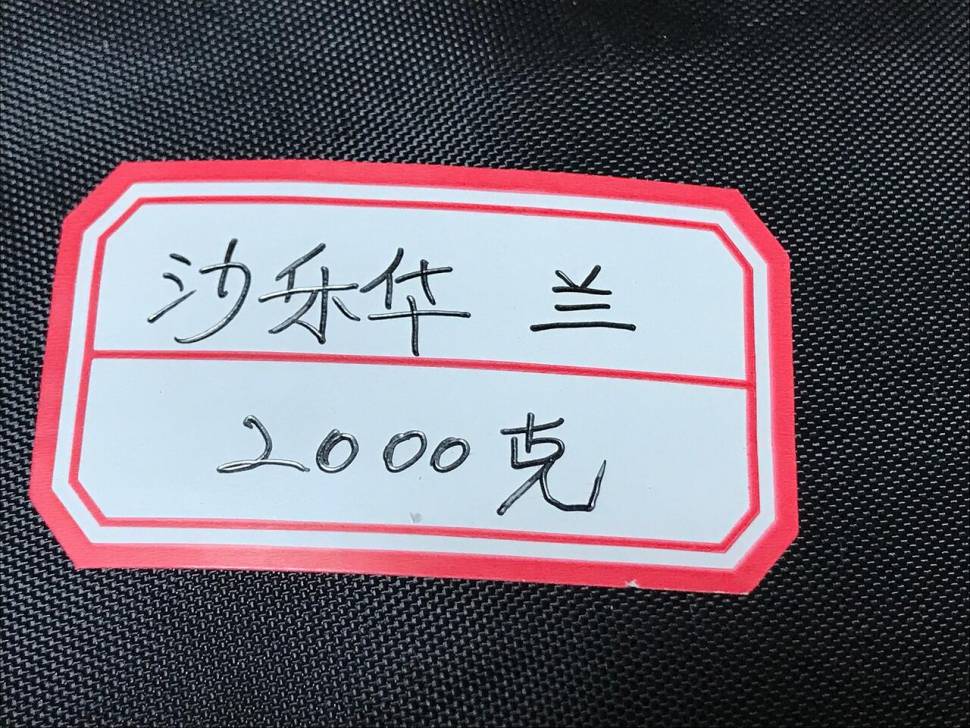 沙乐华 兰
2000克